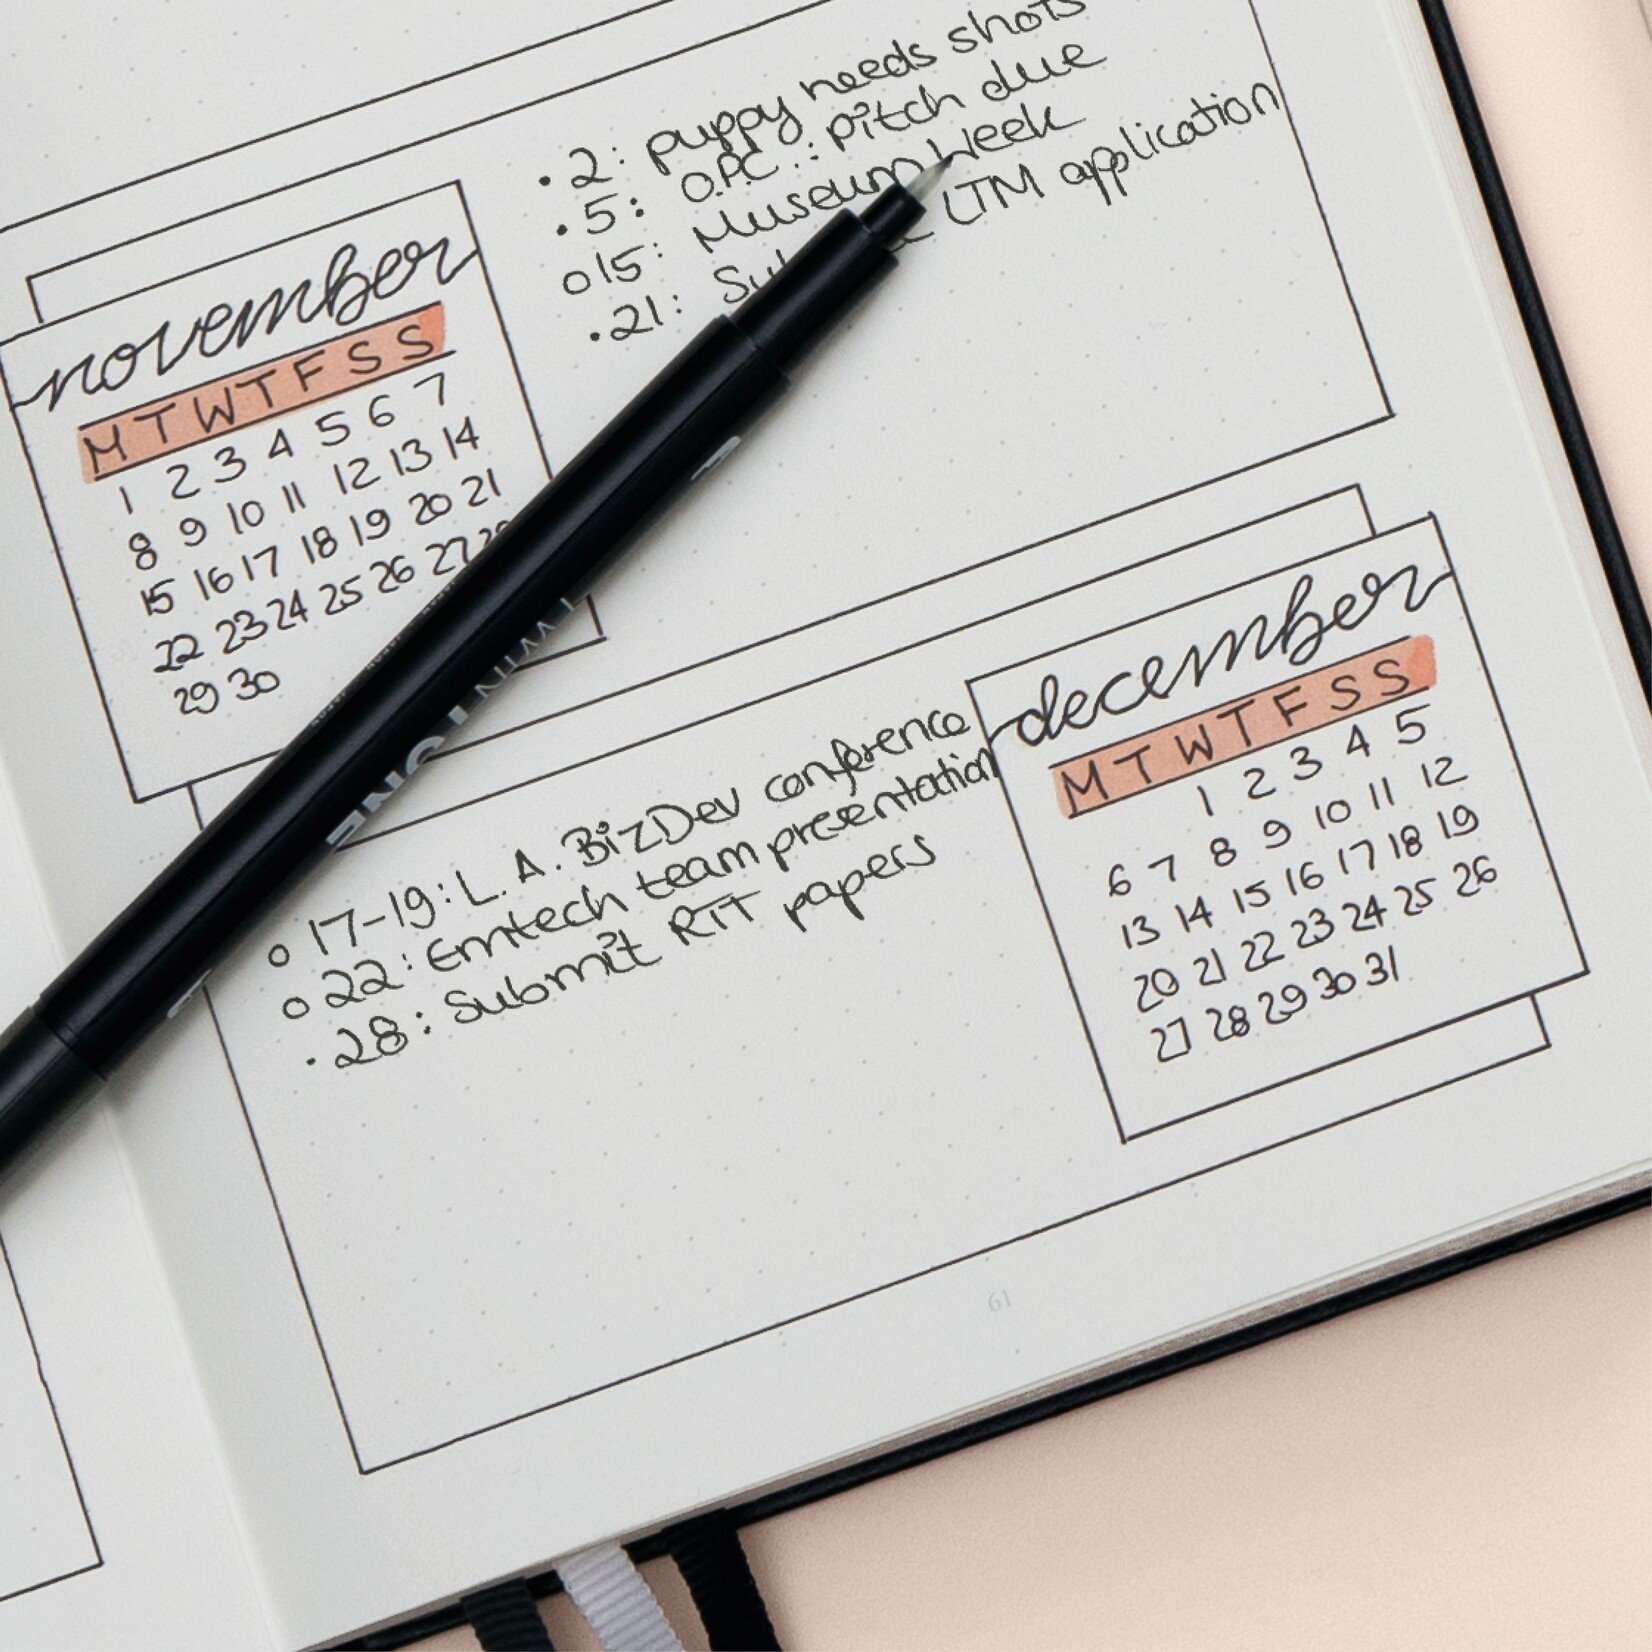 • 2: puppy needs shots
• 5: O.P.C.: pitch due
o 15: Museum Week
• 21: LTM application
november
M T W T F S S
1 2 3 4 5 6 7
8 9 10 11 12 13 14
15 16 17 18 19 20 21
22 23 24 25 26 27
29 30
TWIN
ONE
o 17-19: L.A. BizDev conference
o 22: Emtech team presentation
• 28: Submit RIT papers
december
M T W T F S S
1 2 3 4 5
6 7 8 9 10 11 12
13 14 15 16 17 18 19
20 21 22 23 24 25 26
27 28 29 30 31
61